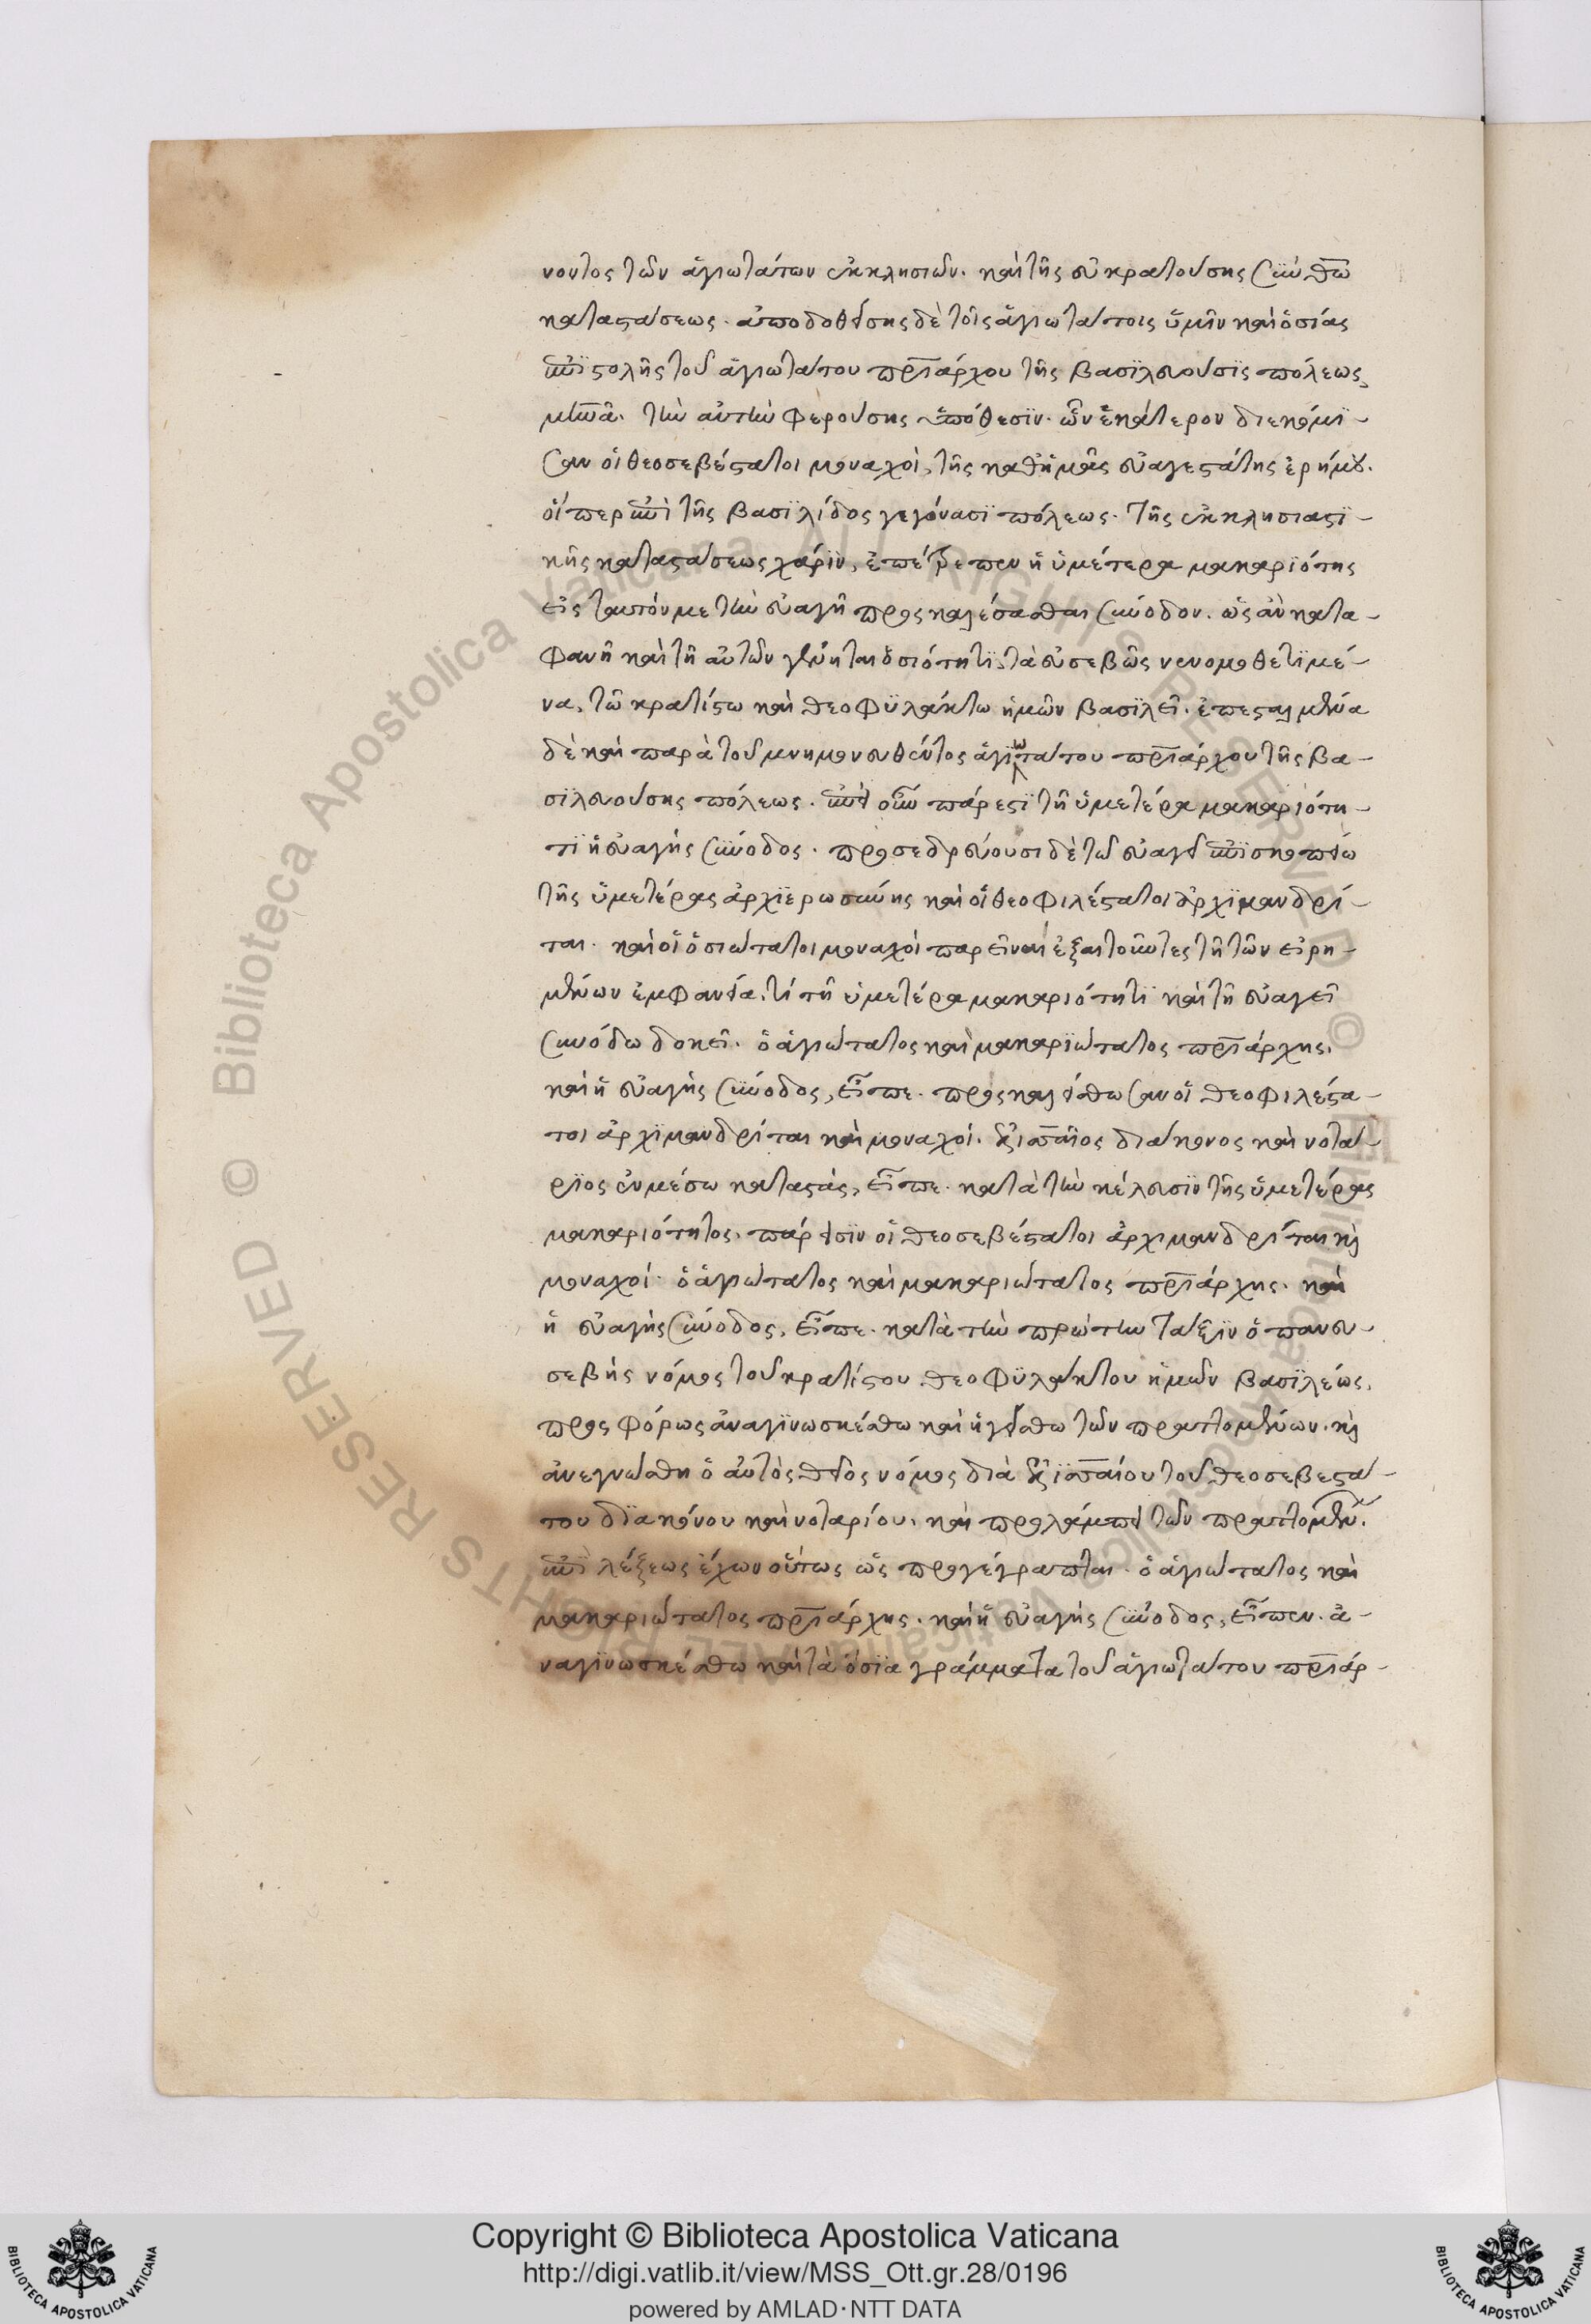 νοντος τῶν ἁγιωτάτων ἐκκλησιῶν. καὶ τῆς εὖ κρατούσης σὺν θεῷ
καταστάσεως. ἀποδοθείσης δὲ τοῖς ἁγιωτάτοις ὑμῖν καὶ ὁσίας
ἐπιστολῆς τοῦ ἁγιωτάτου πριάρχου τῆς βασϊλευούσϊς πόλεως
τὴν αὐτὴν φερούσης ὑπόθεσϊν. ὧν ἑκάτερον διεκόμϊ-
σαν οἱ θεοσεβέστατοι μοναχοὶ, τῆς καθ' ἡμᾶς εὐαγεστάτης ἐρήμου.
οἵπερ ἐπὶ τῆς βασϊλίδος γεγόνασϊ πόλεως. τῆς ἐκκλησιαστϊ-
κῆς καταστάσεως χάρϊν, ἐπέτρεπεν ἡ ὑμέτερα μακαρϊότης
εἰς ταυτόν με τὴν εὐαγῆ προσκαλέσασθαι σύνοδον. ὡς ἂν κατα-
φανῆ καὶ τῆ αὐτῶν γένηται ὁσιότητϊ, τὰ εὐσεβῶς νενομοθετϊμέ-
να, τῶ κρατίστω καὶ θεοφϋλάκτω ἡμῶν βασϊλεῖ. ἐπεσταλμένα
δὲ καὶ παρὰ τοῦ μνημονευθέντος ἁγιωτάτου πριάρχου τῆς βα-
σϊλευούσης πόλεως. ἐπεὶ οὖν πάρεστϊ τῆ ὑμετέρα μακαριότη-
τϊ ἡ εὐαγὴς σύνοδος. προσεδρεύουσι δὲ τῶ εὐαγεῖ ἐπϊσκοπείω
τῆς ὑμετέρας ἀρχϊερωσύνης καὶ οἱ θεοφιλέστατοι ἀρχϊμανδρί-
ται. καὶ οἱ ὁσιώτατοι μοναχοὶ παρεῖναι ἐξαιτοῦντες τῆ τῶν εἰρη-
μένων ἐμφανεία, τί τῆ ὑμετέρα μακαριότητϊ καὶ τῆ εὐαγεῖ
συνόδω δοκεῖ. ὁ ἁγιώτατος καὶ μακαρϊώτατος πριάρχης,
καὶ ἡ εὐαγὴς σύνοδος, εἶπε. προσκαλείσθωσαν οἱ θεοφιλέστα-
τοι ἀρχϊμανδρίται καὶ μοναχοί. διάκονος καὶ νοτά-
ρϊος ἐν μέσω καταστὰς, εἶπε. κατὰ τὴν κέλευσϊν τῆς ὑμετέρας
μακαριότητος, πάρεισϊν οἱ θεοσεβέστατοι ἀρχιμανδρίται καὶ
μοναχοί. ὁ ἁγιώτατος καὶ μακαριώτατος πριάρχης. καὶ
ἡ εὐαγὴς σύνοδος, εἶπε. κατὰ τὴν πρώτην τάξϊν ὁ πανευ-
σεβὴς νόμος τοῦ κρατίστου θεοφϋλάκτου ἡμῶν βασϊλέως,
προσφόρως ἀναγϊνωσκέσθω καὶ ἡγείσθω τῶν πραττομένων. καὶ
ἀνεγνώσθη ὁ αὐτὸς θεῖος νόμος διὰ τοῦ θεοσεβεστά-
του δϊακόνου καὶ νοταρίου. καὶ προλάμπει τῶν πραττομένων.
ἐπὶ λέξεως ἔχων οὕτως ὡς προγέγραπται. ὁ ἁγιώτατος καὶ
μακαριώτατος πριάρχης. καὶ ἡ εὐαγὴς σύνοδος, εἶπεν. ἀ-
ναγϊνωσκέσθω καὶ τὰ ὅσϊα γράμματα τοῦ ἁγιωτάτου πριάρ-
Copyright © Biblioteca Apostolica Vaticana
http://digi.vatlib.it/view/MSS_Ott.gr.28/0196
powered by AMLAD·NTT DATA